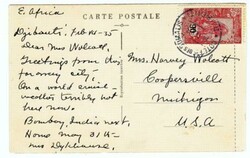 E. Africa
CARTE POSTALE
Djibouti, Feb 14-25
Dear Mrs Wolcott,
Greetings from this
far away city,
On a world cruise,
weather terribly hot
here now.
Bombay, India next,
Home May 31st
Mrs
Mrs. Harvey Wolcott
Coopersville
Michigan
U.S.A